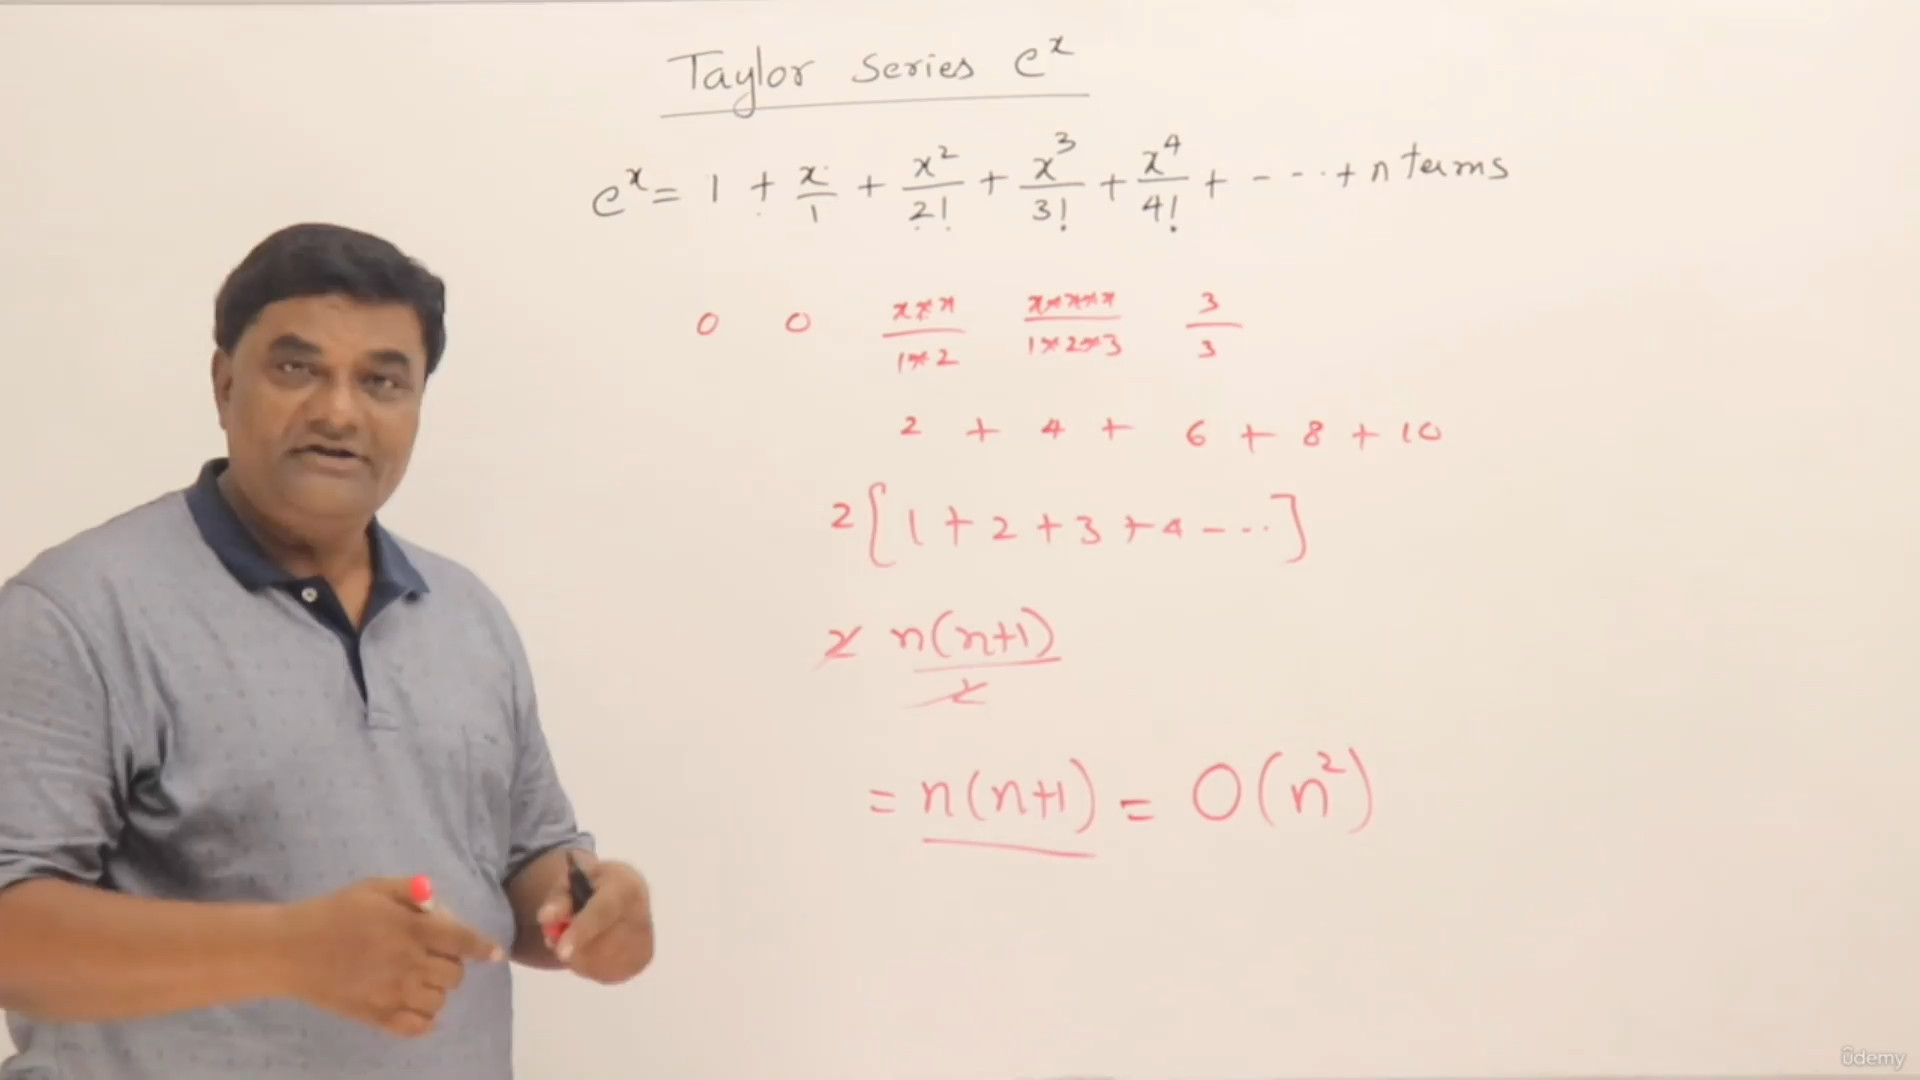 Taylor Series e^x
e^x = 1 + x/1 + x^2/2! + x^3/3! + x^4/4! + - - - + n terms
0 0 x×x/1×2 x×x×x/1×2×3 3/3
2 + 4 + 6 + 8 + 10
2[1 + 2 + 3 + 4 - - - ]
2 n(n+1)/2
= n(n+1) = O(n^2)
ûdemy